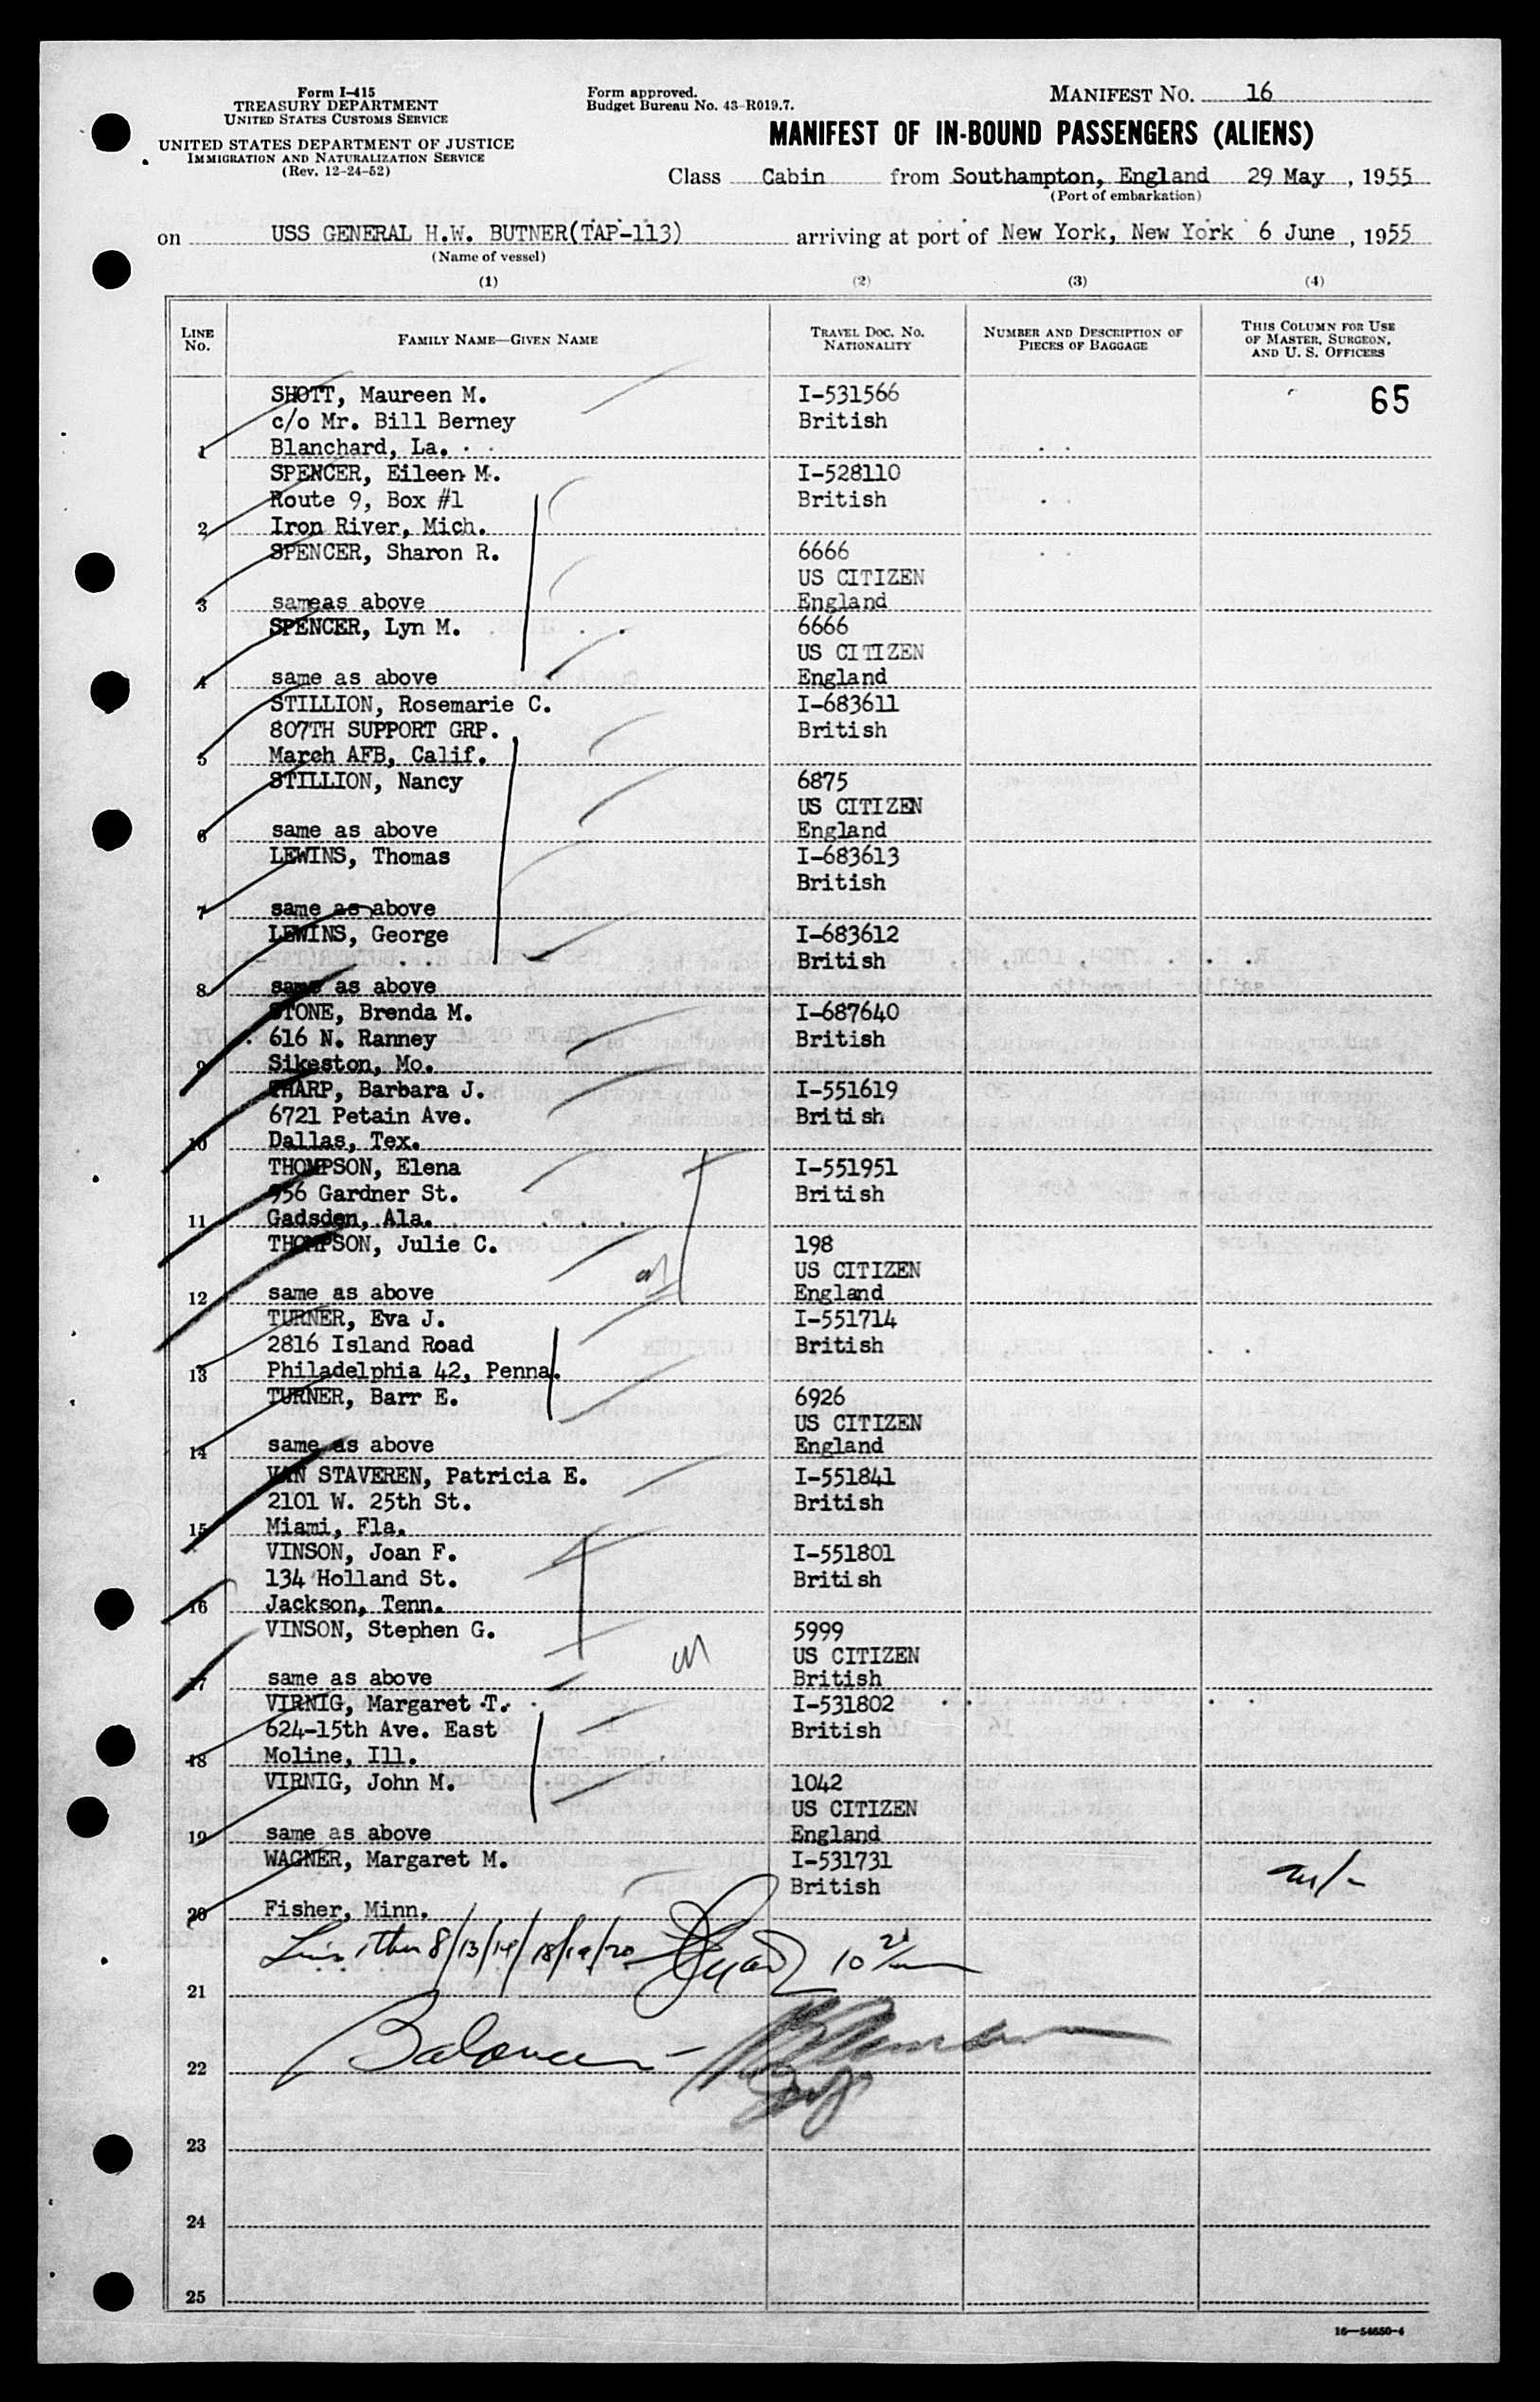 Form I-415
TREASURY DEPARTMENT
UNITED STATES CUSTOMS SERVICE
UNITED STATES DEPARTMENT OF JUSTICE
IMMIGRATION AND NATURALIZATION SERVICE
(Rev. 12-24-52)
Form approved.
Budget Bureau No. 43-R019.7.
MANIFEST NO. 16
MANIFEST OF IN-BOUND PASSENGERS (ALIENS)
Class Cabin from Southampton, England 29 May, 1955
(Port of embarkation)
on USS GENERAL H.W. BUTNER(TAP-113) arriving at port of New York, New York 6 June, 1955
(Name of vessel)
(1) (2) (3) (4)
LINE NO. FAMILY NAME—GIVEN NAME TRAVEL DOC. NO. NATIONALITY NUMBER AND DESCRIPTION OF PIECES OF BAGGAGE THIS COLUMN FOR USE OF MASTER, SURGEON, AND U. S. OFFICERS
SHOTT, Maureen M. I-531566 65
c/o Mr. Bill Berney British
1 Blanchard, La.
SPENCER, Eileen M. I-528110
Route 9, Box #1 British
2 Iron River, Mich.
SPENCER, Sharon R. 6666
US CITIZEN
3 sameas above England
SPENCER, Lyn M. 6666
US CITIZEN
4 same as above England
STILLION, Rosemarie C. I-683611
807TH SUPPORT GRP. British
5 March AFB, Calif.
STILLION, Nancy 6875
US CITIZEN
6 same as above England
LEWINS, Thomas I-683613
British
7 same as above
LEWINS, George I-683612
British
8 same as above
STONE, Brenda M. I-687640
616 N. Ranney British
9 Sikeston, Mo.
THARP, Barbara J. I-551619
6721 Petain Ave. British
10 Dallas, Tex.
THOMPSON, Elena I-551951
956 Gardner St. British
11 Gadsden, Ala.
THOMPSON, Julie C. 198
US CITIZEN
12 same as above England
TURNER, Eva J. I-551714
2816 Island Road British
13 Philadelphia 42, Penna.
TURNER, Barr E. 6926
US CITIZEN
14 same as above England
VAN STAVEREN, Patricia E. I-551841
2101 W. 25th St. British
15 Miami, Fla.
VINSON, Joan F. I-551801
134 Holland St. British
16 Jackson, Tenn.
VINSON, Stephen G. 5999
US CITIZEN
17 same as above British
VIRNIG, Margaret T. I-531802
624-15th Ave. East British
18 Moline, Ill.
VIRNIG, John M. 1042
US CITIZEN
19 same as above England
WAGNER, Margaret M. I-531731
British
20 Fisher, Minn.
8/13/14/18/19/20
21
22 Balance
23
24
25
16—54650-4